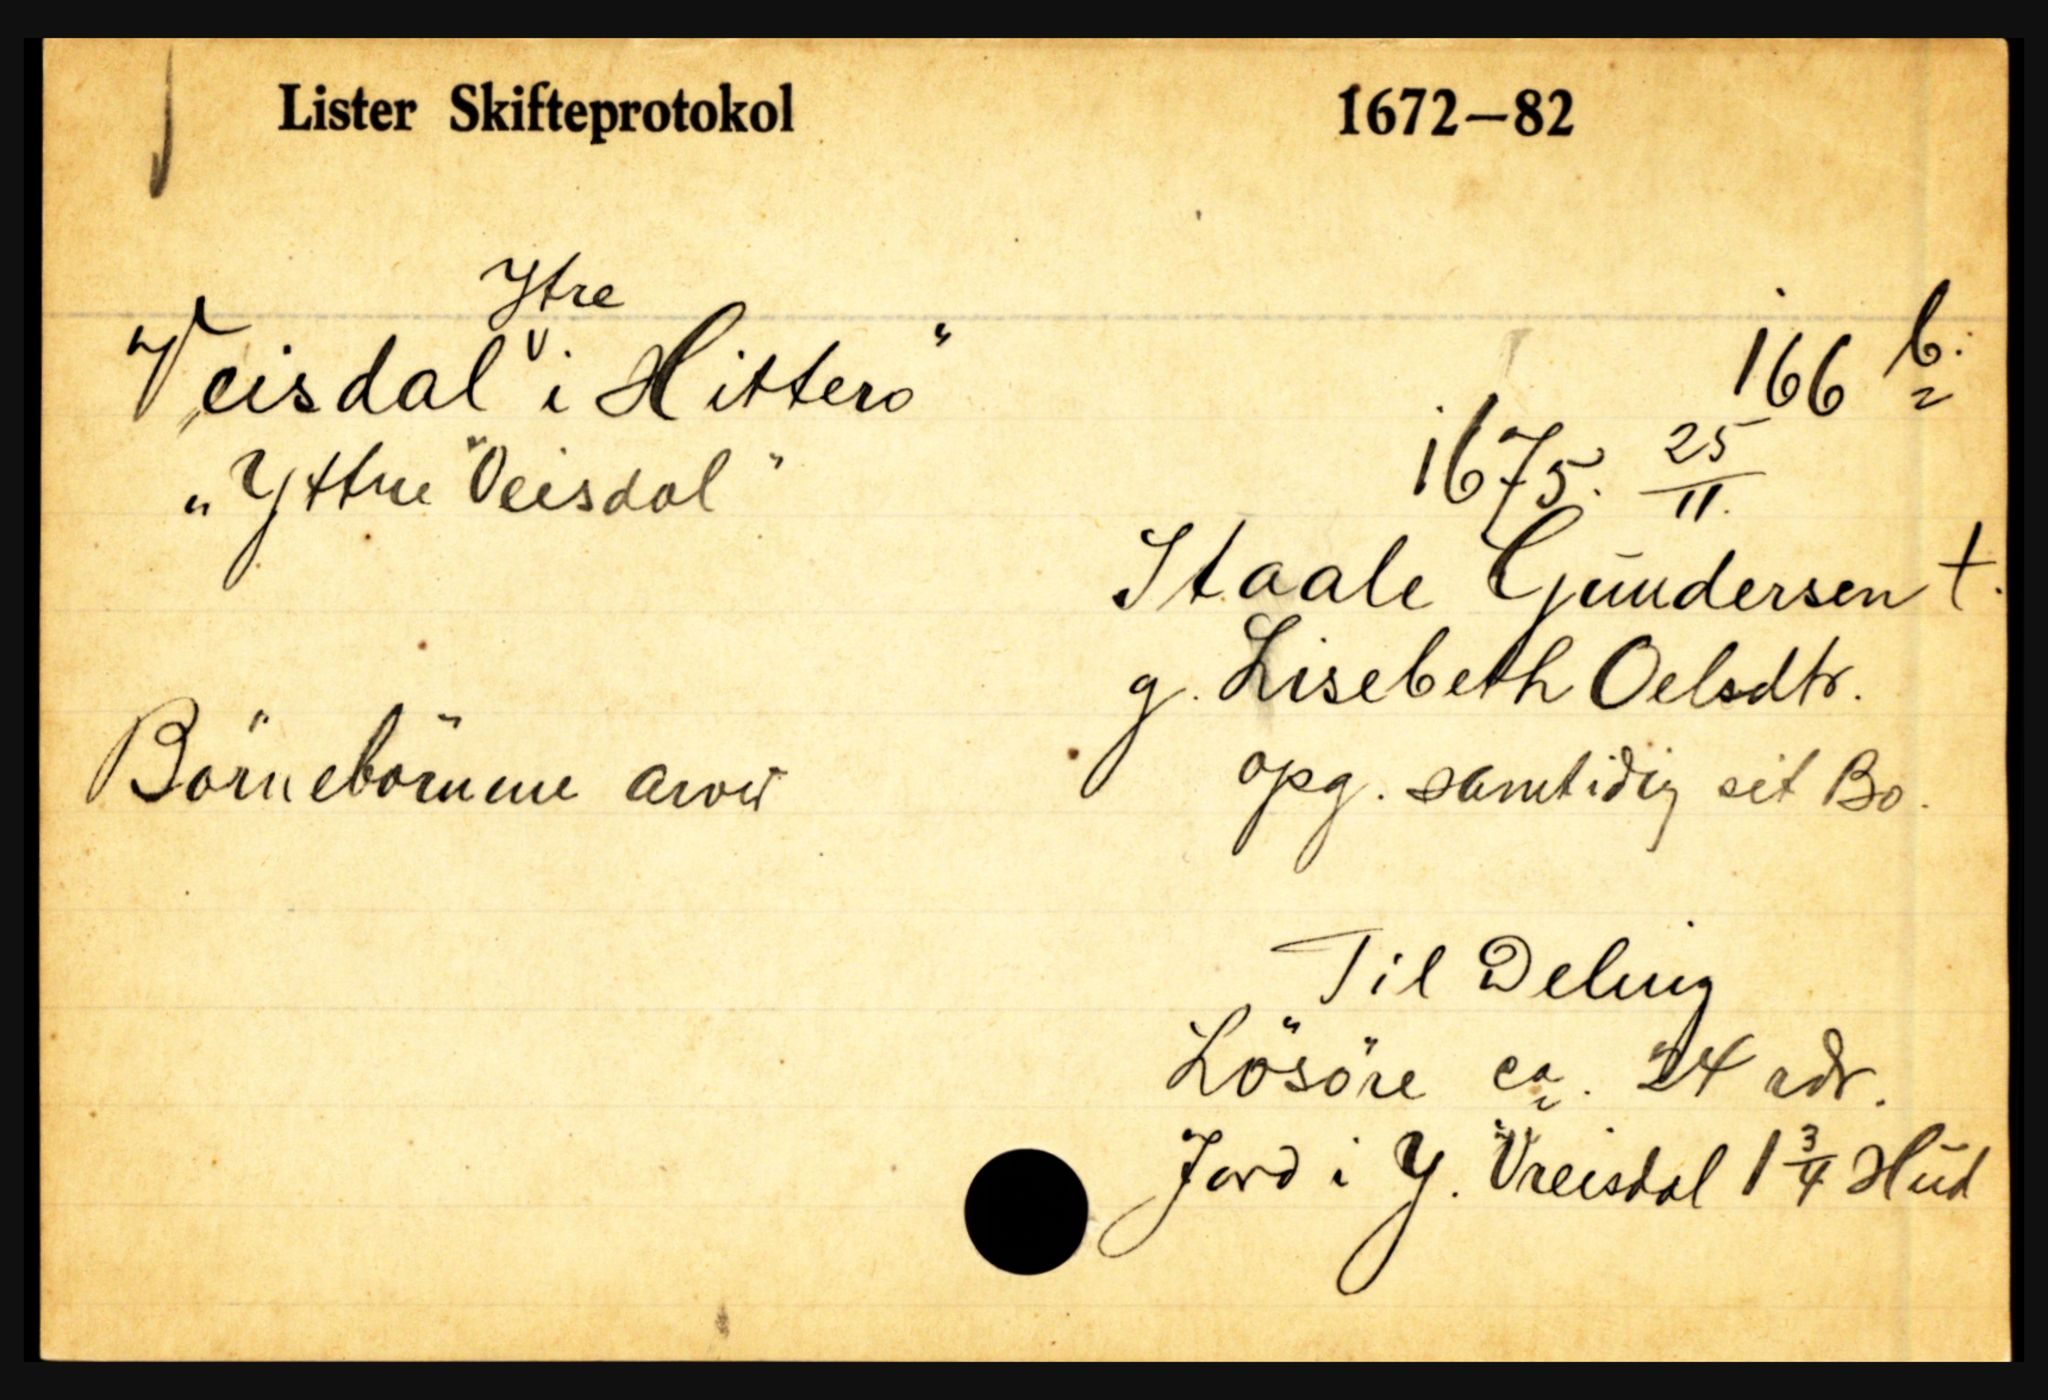 Lister Skifteprotokol 1672–82
Ytre
"Veisdal i Hitterø"
166 b.
"Yttre Veisdal"
1675. 25/11.
Staale Gundersen †.
g. Lisebeth Oelsdtr.
Börnebörnene arver
opg. samtidig sit Bo.
Til Deling
Lösöre ca. 24 rdr.
Jord i Y. Vreisdal 1 3/4 Hud